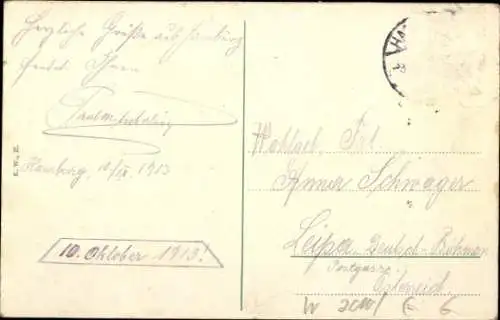 Herzliche Grüße aus Hamburg
sendet Ihnen
Hamburg, 10/IX 1913
10. Oktober 1913!
E. W. H.
HA
Wohlgeb. Frl.
Anna Schwager
Leipa Deutsch-Böhmen
Postgasse
Österreich.
W
6